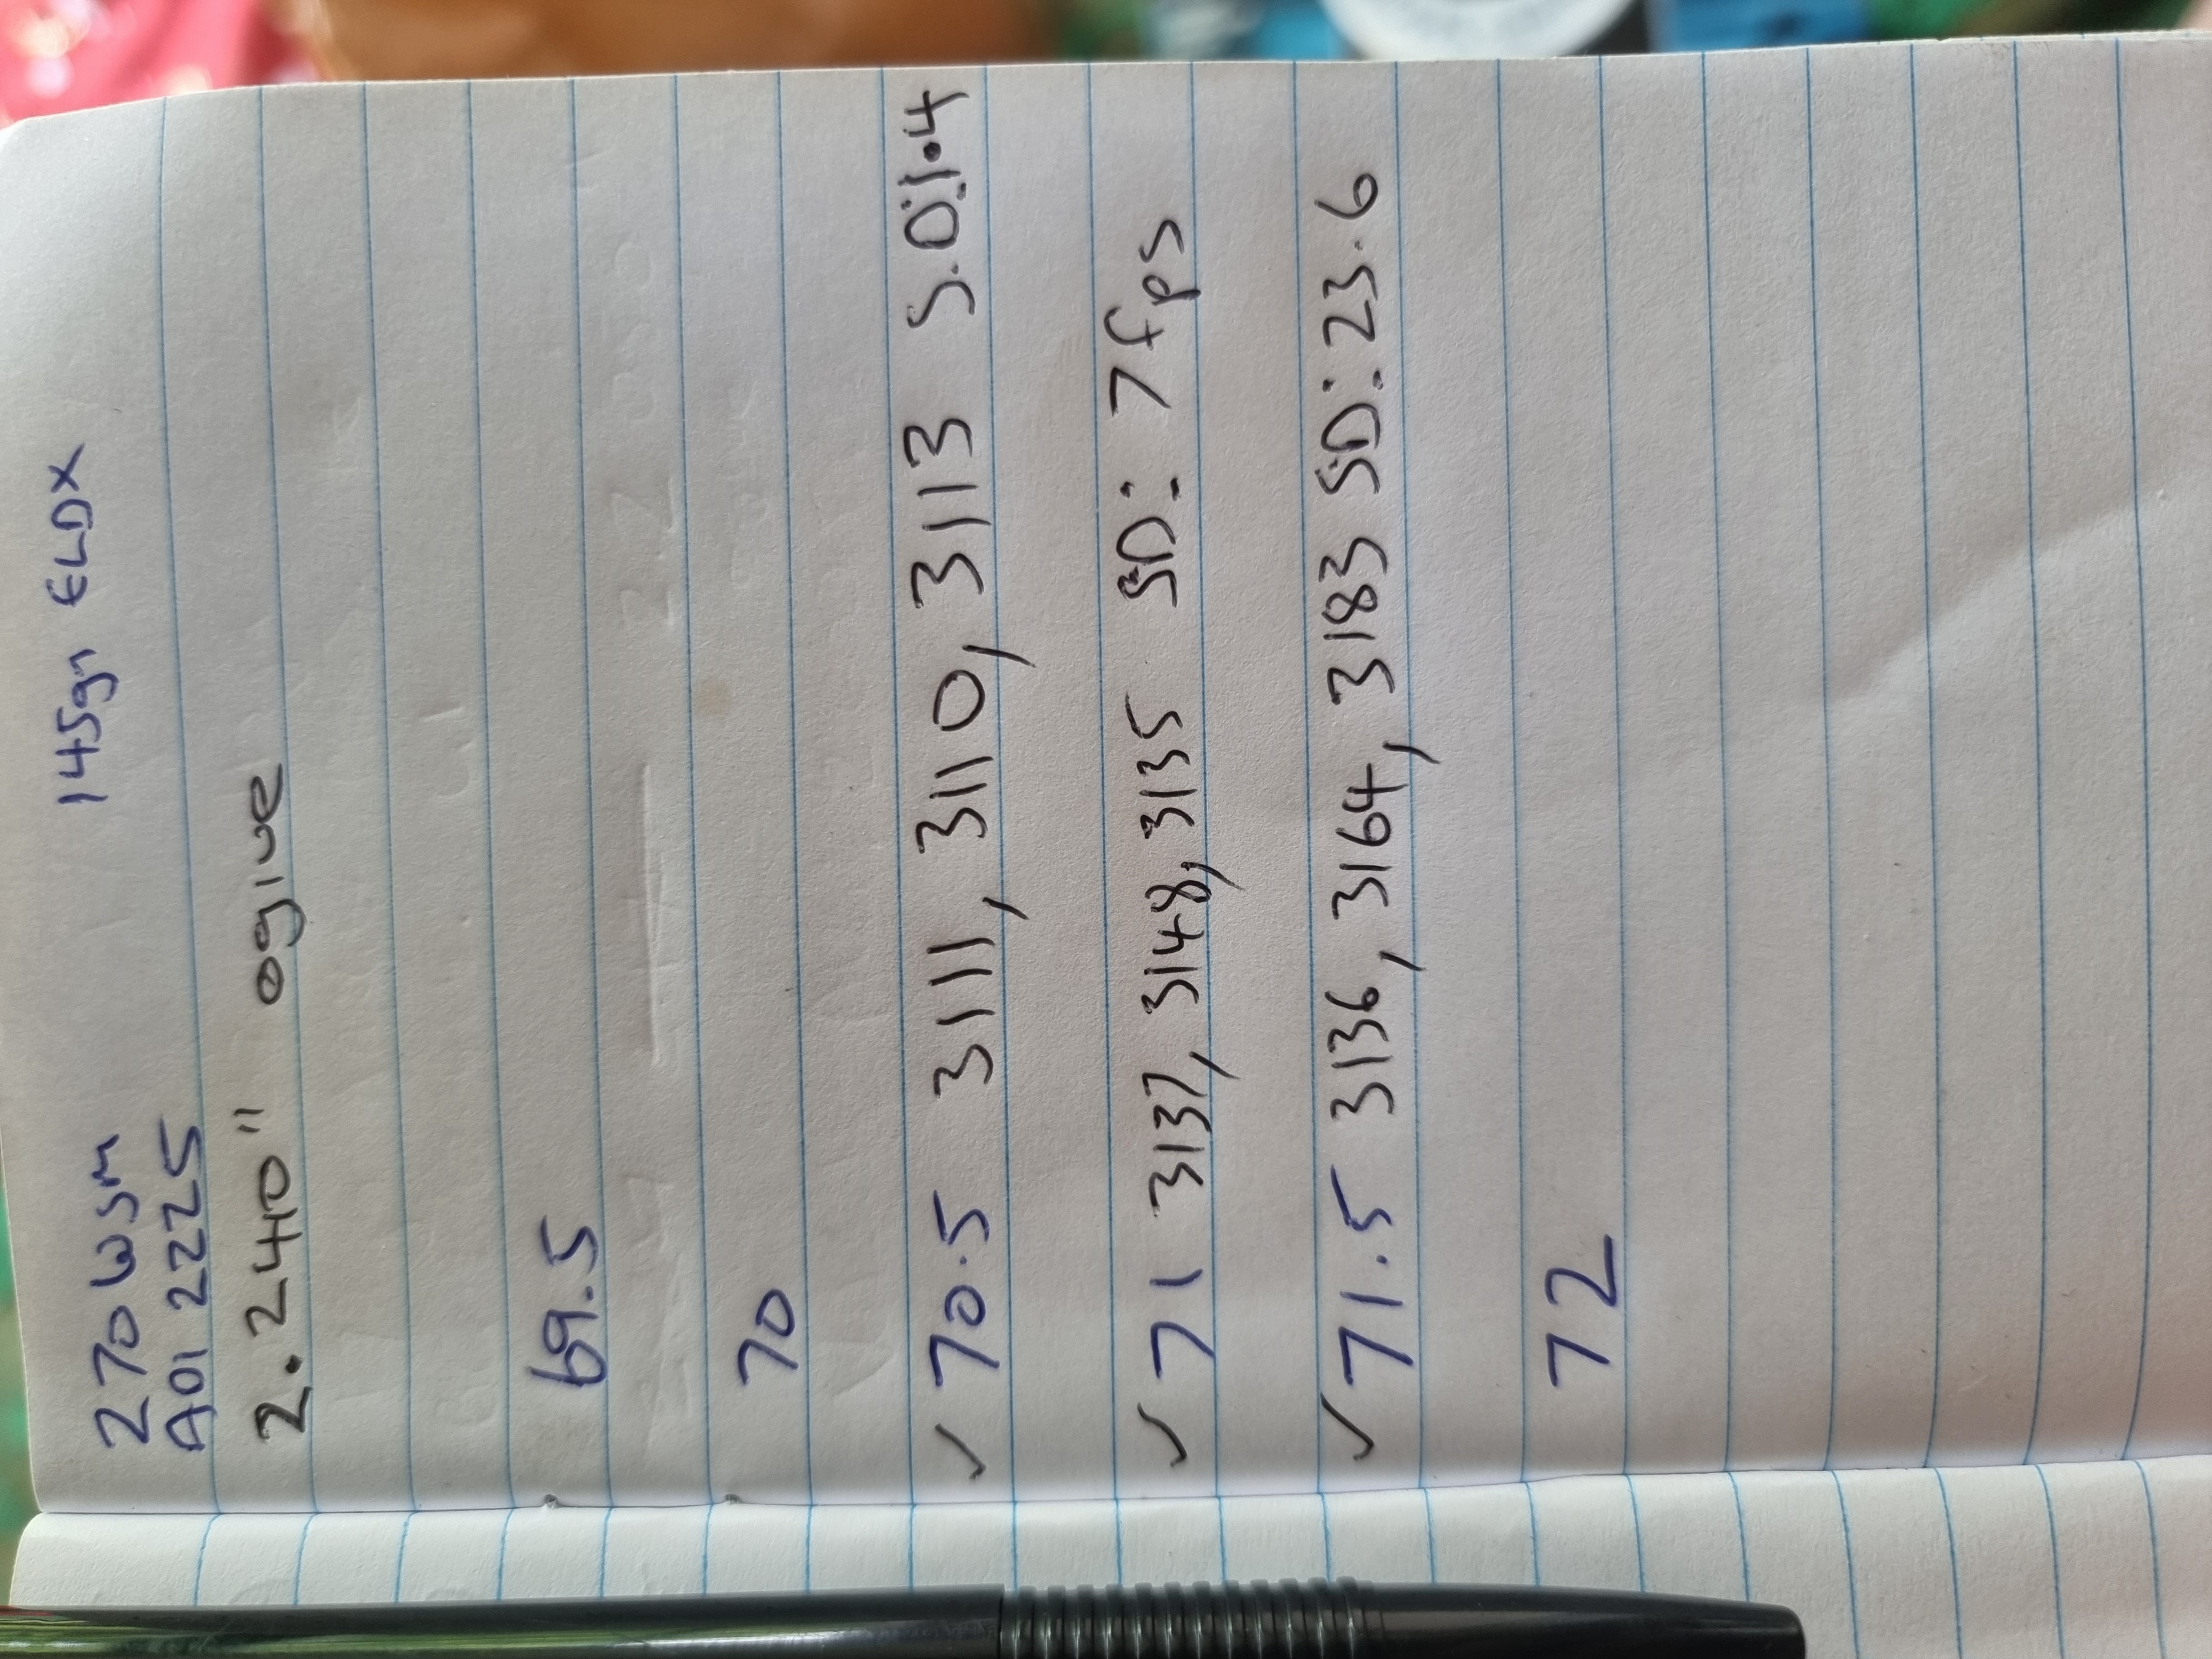 270 WSM 145gr ELDX
ADI 2225
2.240" ogive
69.5
70
✓ 70.5 3111, 3110, 3113 S.D:1.4
✓ 71 3137, 3148, 3135 SD: 7fps
✓ 71.5 3136, 3164, 3183 SD: 23.6
72